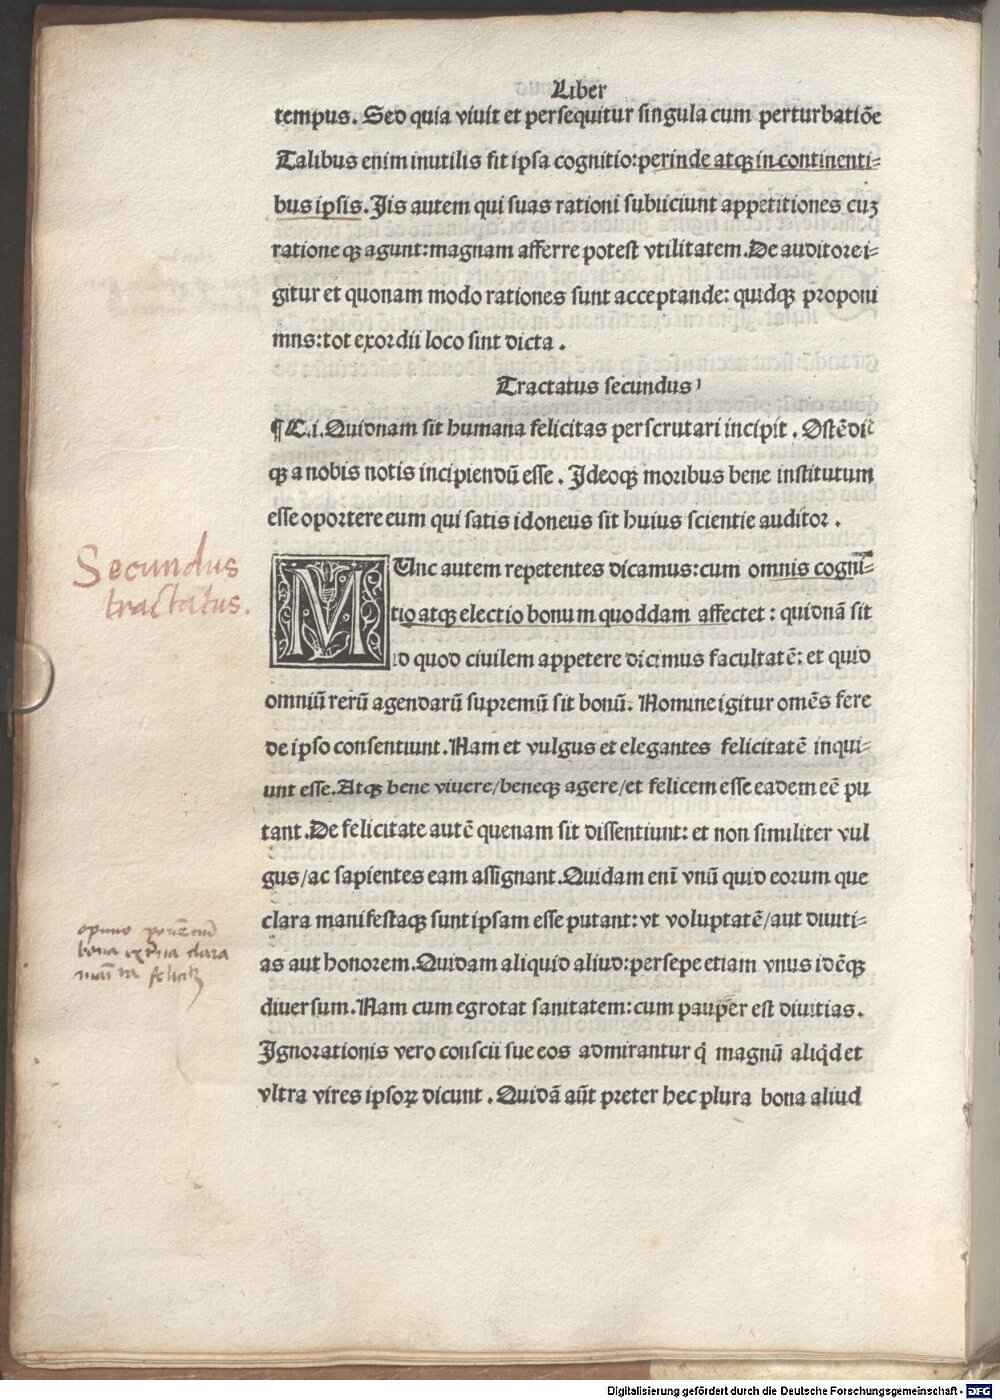 Liber
tempus. Sed quia viuit et persequitur singula cum perturbatiõe
Talibus enim inutilis fit ipsa cognitio:perinde atqꝫ in continenti-
bus ipsis. Jis autem qui suas rationi subiiciunt appetitiones cuꝫ
ratione qꝫ agunt:magnam afferre potest vtilitatem. De auditore i-
gitur et quonam modo rationes sunt acceptande: quidqꝫ proponi
mns:tot exordii loco sint dicta.
Tractatus secundus
¶C.i. Quidnam sit humana felicitas perscrutari incipit. Ostẽdit
qꝫ a nobis notis incipiendũ esse. Jdeoqꝫ moribus bene institutum
esse oportere eum qui satis idoneus sit huius scientie auditor.
Secundus
tractatus.
MUnc autem repetentes dicamus:cum omnis cogni-
tio atqꝫ electio bonum quoddam affectet: quidnã sit
id quod ciuilem appetere dicimus facultatẽ: et quid
omniũ rerũ agendarũ supremũ sit bonũ. Nomine igitur omẽs fere
de ipso consentiunt. Nam et vulgus et elegantes felicitatẽ inqui-
unt esse. Atqꝫ bene viuere/beneqꝫ agere/et felicem esse eadem eẽ pu
tant. De felicitate autẽ quenam sit dissentiunt: et non similiter vul
gus/ac sapientes eam assignant. Quidam eni᷑ vnũ quid eorum que
clara manifestaqꝫ sunt ipsam esse putant: vt voluptatẽ/aut diuiti-
as aut honorem. Quidam aliquid aliud:persepe etiam vnus idẽqꝫ
bona clara
diuersum. Nam cum egrotat sanitatem: cum pauper est diuitias.
Jgnorationis vero conscii sue eos admirantur q̇ magnũ aliq̇d et
vltra vires ipsoꝝ dicunt. Quidã aũt preter hec plura bona aliud
Digitalisierung gefördert durch die Deutsche Forschungsgemeinschaft - DFG